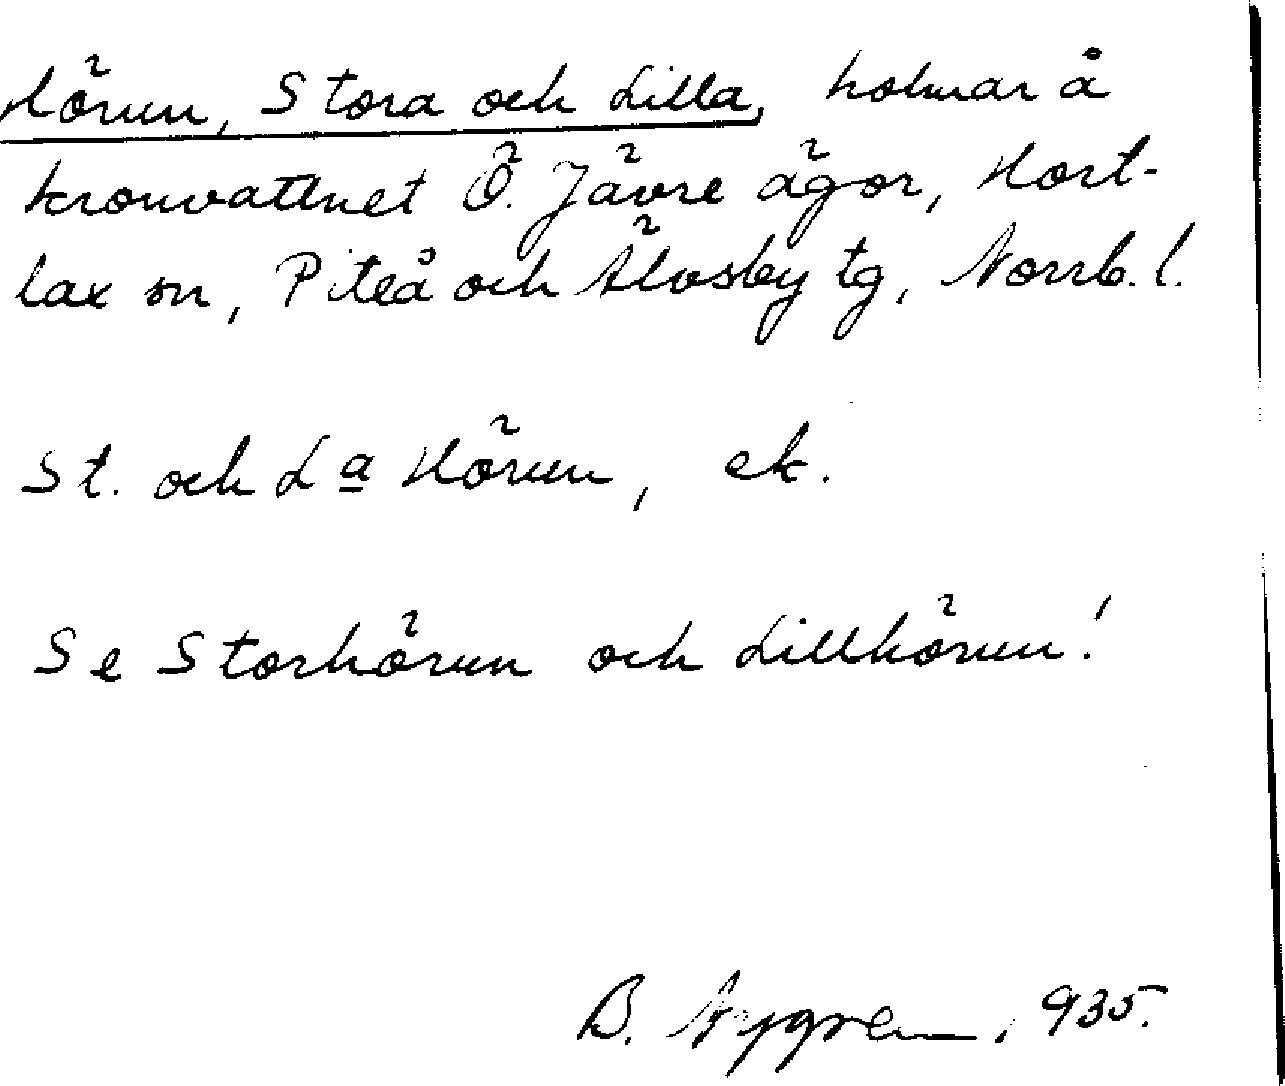 Hörun, Stora och Lilla, holmar å
kronvattnet Ö. Jävre ägor, Hort-
lax sn, Piteå och Älvsby tg, Norrb. l.
St. och La Hörun, ek.
Se Storhörun och Lillhörun!
B. Nygren, 935.